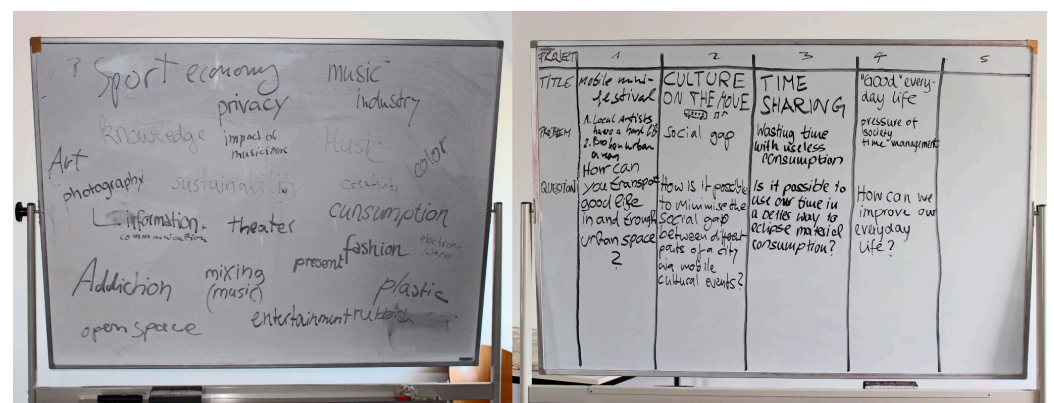 Sport economy music
privacy industry
knowledge impact of musicians Music color
Art
photography sustainability creativity
information theater cunsumption
communication
fashion electronic
present
Addiction mixing plastic
(music)
open space entertainment rubbish
PROJECT 1 2 3 4 5
TITLE
Mobile mini-
festival
CULTURE
ON THE MOVE
TIME
SHARING
"Good" every-
day life
PROBLEM
1. Local Artists
have a hard
2.
Social gap
Wasting time
with useless
consumption
pressure of
society
time management
QUESTION
How can
you transport
good life
in and trough
urban space
?
How is it possible
to minimise the
social gap
between different
parts of a city
via mobile
cultural events?
Is it possible to
use our time in
a better way to
eclipse material
consumption?
How can we
improve our
everyday
life?